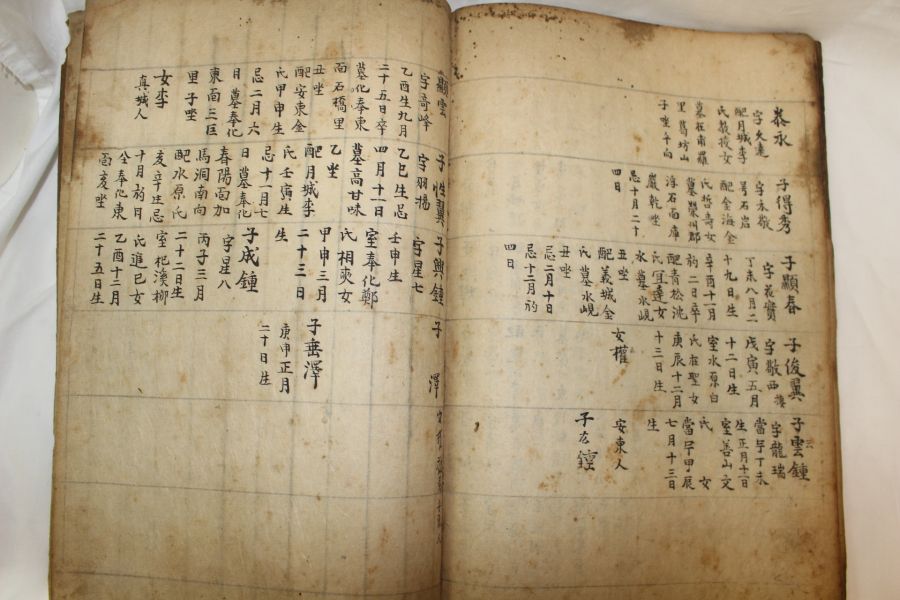 泰永
字久遠
配月城李
氏敎授女
墓在南羅
里葛坊山
子坐午向
子得秀
字永敬
号石岩
配金海金
氏哲奇女
墓榮川郡
浮石面庫
巖乾坐
忌十月二十
四日
子顯春
字花實
丁未八月二
十九日生
辛酉十一月
初二日卒
配青松沈
氏宜達女
水墓水峴
丑坐
配義城金
氏墓水峴
丑坐
忌二月十日
忌十二月初
四日
子俊翼
字敬西
戊寅五月
十二日生
室水原白
氏在聖女
庚辰十二月
十三日生
女權
子雲鍾
字龍瑞
當宁丁未
生正月十一日
室善山文
氏 女
當宁甲辰
七月十三日
生
安東人
子玄鍾
顯雲
字奇峰
乙酉生九月
二十五日卒
墓化奉東
面石橋里
丑坐
配安東金
氏甲申生
忌二月六
日墓奉化
東面三巨
里子坐
女李
真城人
子性翼
字羽揚
乙巳生忌
四月十一日
墓高甘味
乙坐
配月城李
氏壬寅生
忌十一月七
日墓奉化
春陽面加
馬洞南向
配水原氏
亥辛生忌
十月初日
仝奉化東
面亥坐
子興鍾
字星七
壬申生
室奉化鄭
氏相奭女
甲申三月
二十三日
生
子成鍾
字星八
丙子三月
二十二日生
室杞溪柳
氏進巳女
乙酉十二月
二十五日生
子 澤
子垂澤
庚申正月
二十日生